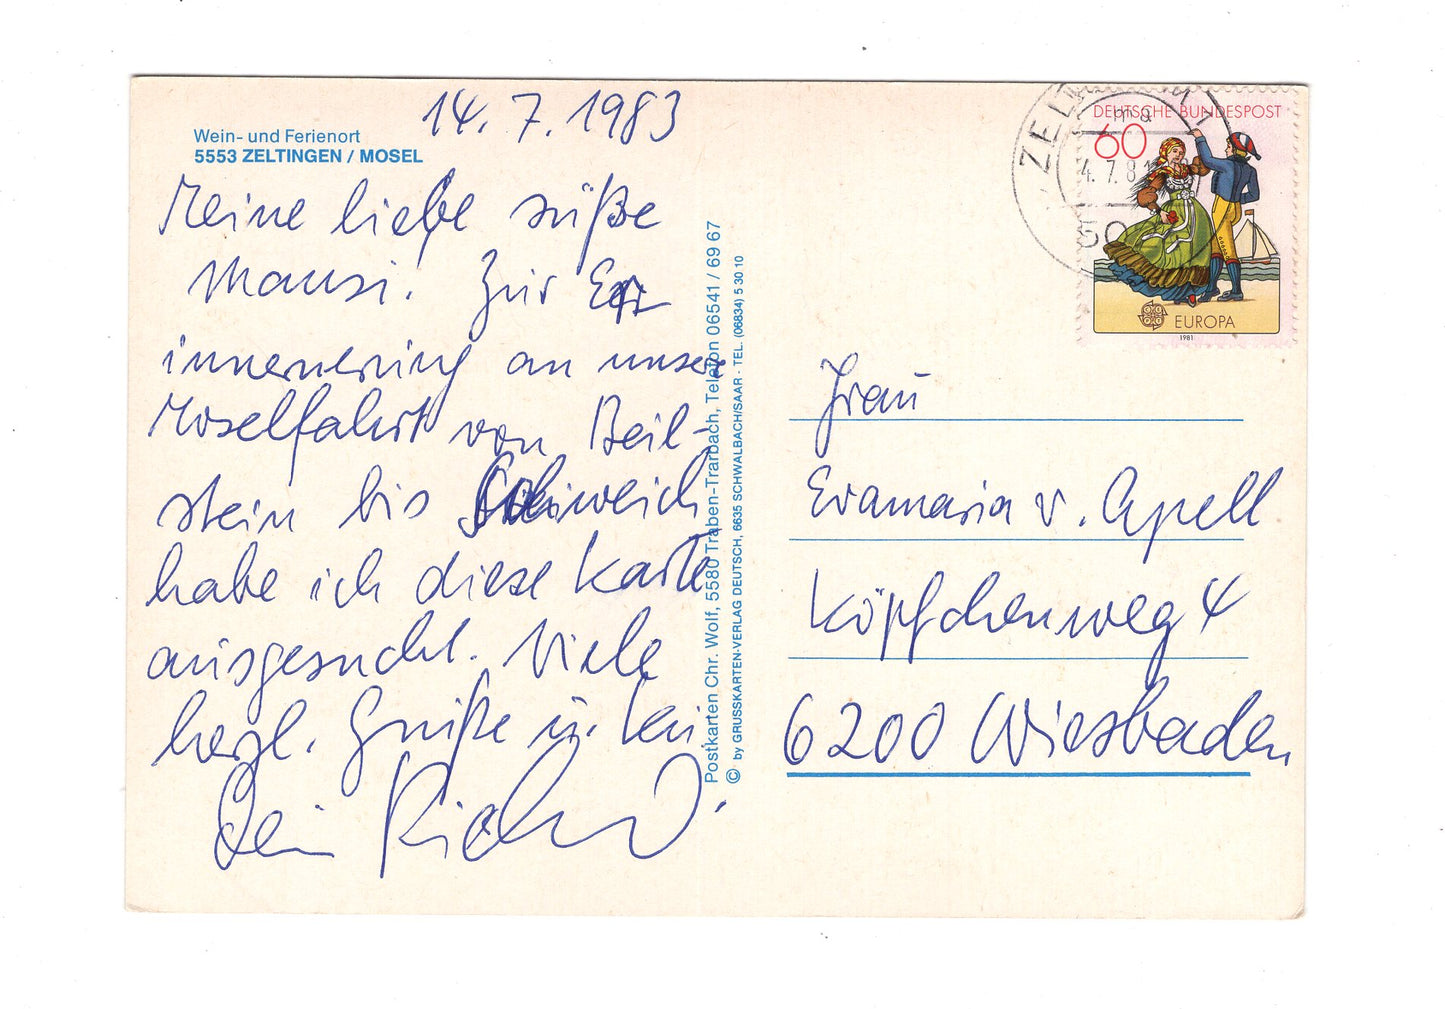 14.7.1983
Wein- und Ferienort
5553 ZELTINGEN / MOSEL
Meine liebe süße
Mausi! Zur Er
innernering an unsere
Moselfahrt von Beil-
stein bis Schweich
habe ich diese Karte
ausgesucht. Viele
herzl. Grüße u.
Dein Richard.
Postkarten Chr. Wolf, 5580 Traben-Trarbach, Telefon 06541 / 69 67
© by GRUSSKARTEN-VERLAG DEUTSCH, 6635 SCHWALBACH/SAAR · TEL. (06834) 5 30 10
DEUTSCHE BUNDESPOST
60
EUROPA
1981
ZELT
4.7.8
Frau
Evamaria v. Apell
Köpfchenweg 4
6200 Wiesbaden